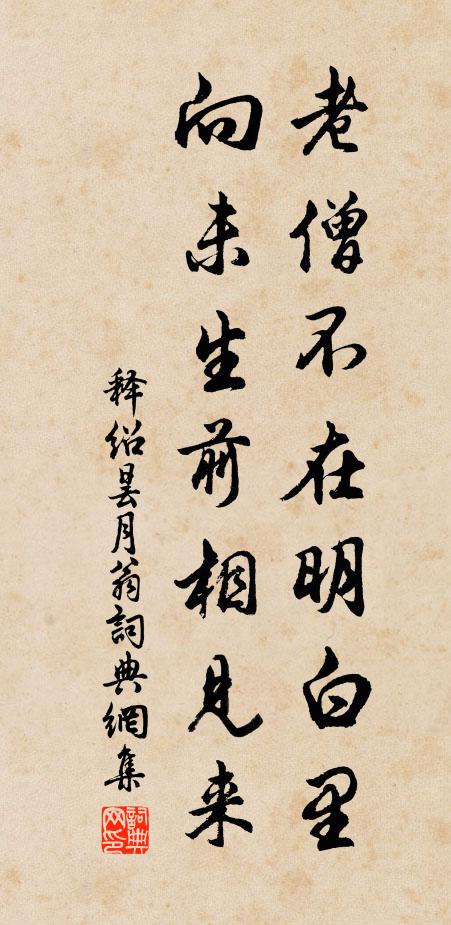 老僧不在明白里
向未生前相見来
释绍昙月翁詞典網集
詞典网印